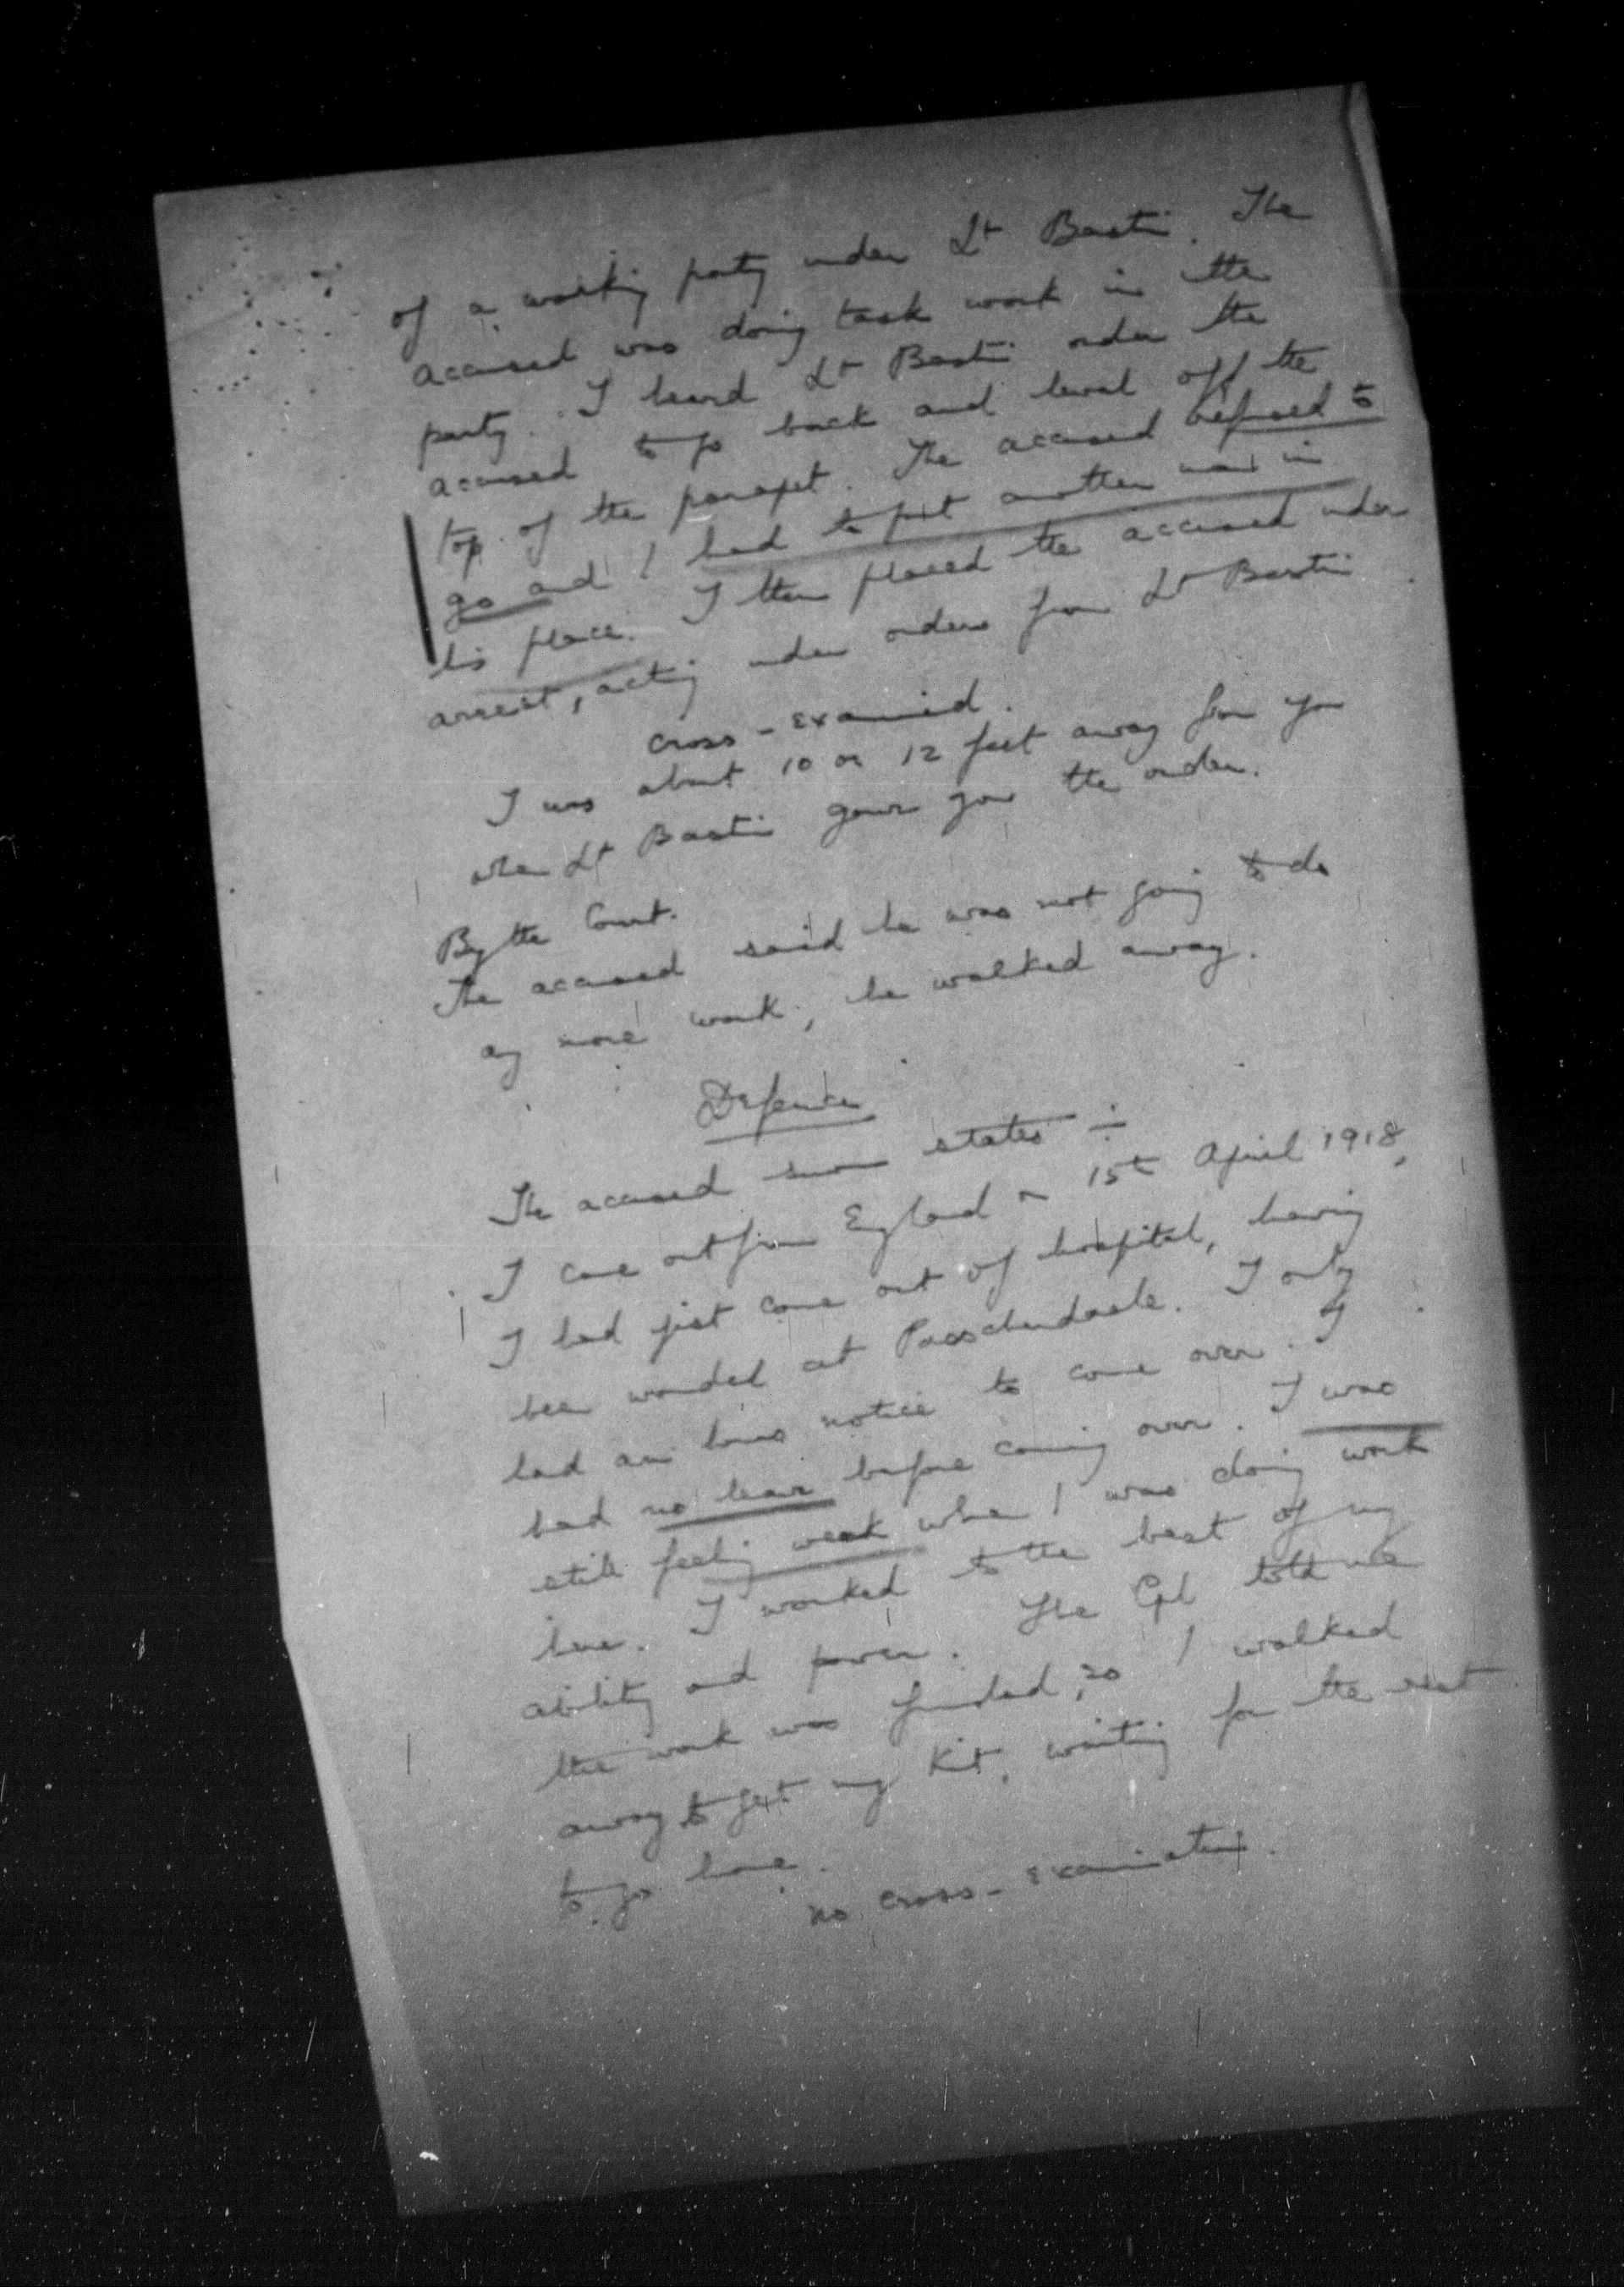 of a working party under Lt Bastin. The
accused was doing task work in the
party. I heard Lt Bastin order the
accused to go back and level off the
top of the parapet. The accused refused to
go and I had to put another man in
his place. I then placed the accused under
arrest, acting under orders from Lt Bastin.
Cross-examined.
I was about 10 or 12 feet away from you
when Lt Bastin gave you the order.
By the Court.
The accused said he was not going to do
any more work, he walked away.
Defence
The accused sworn states:-
I came out from England on 15th April 1918,
I had just come out of hospital, having
been wounded at Passchendaele. I only
had an hours notice to come over. I
had no leave before coming over. I was
still feeling weak when I was doing work
here. I worked to the best of my
ability and power. The Cpl told me
the work was finished, so I walked
away to get my kit, waiting for the rest
to go home.
No cross-examination.